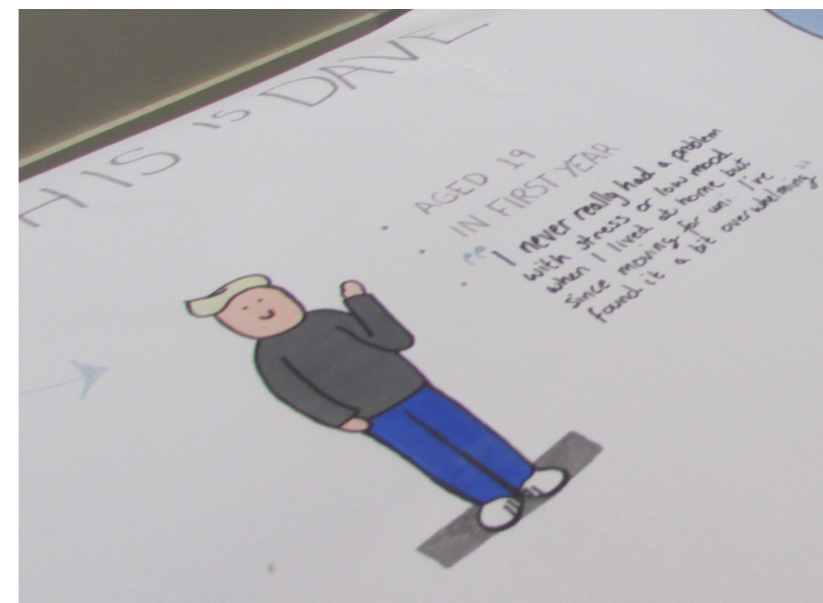 HIS IS DAVE
AGED 19
IN FIRST YEAR
"I never really had a problem
with stress or low mood
when I lived at home but
since moving for uni I've
found it a bit overwhelming"